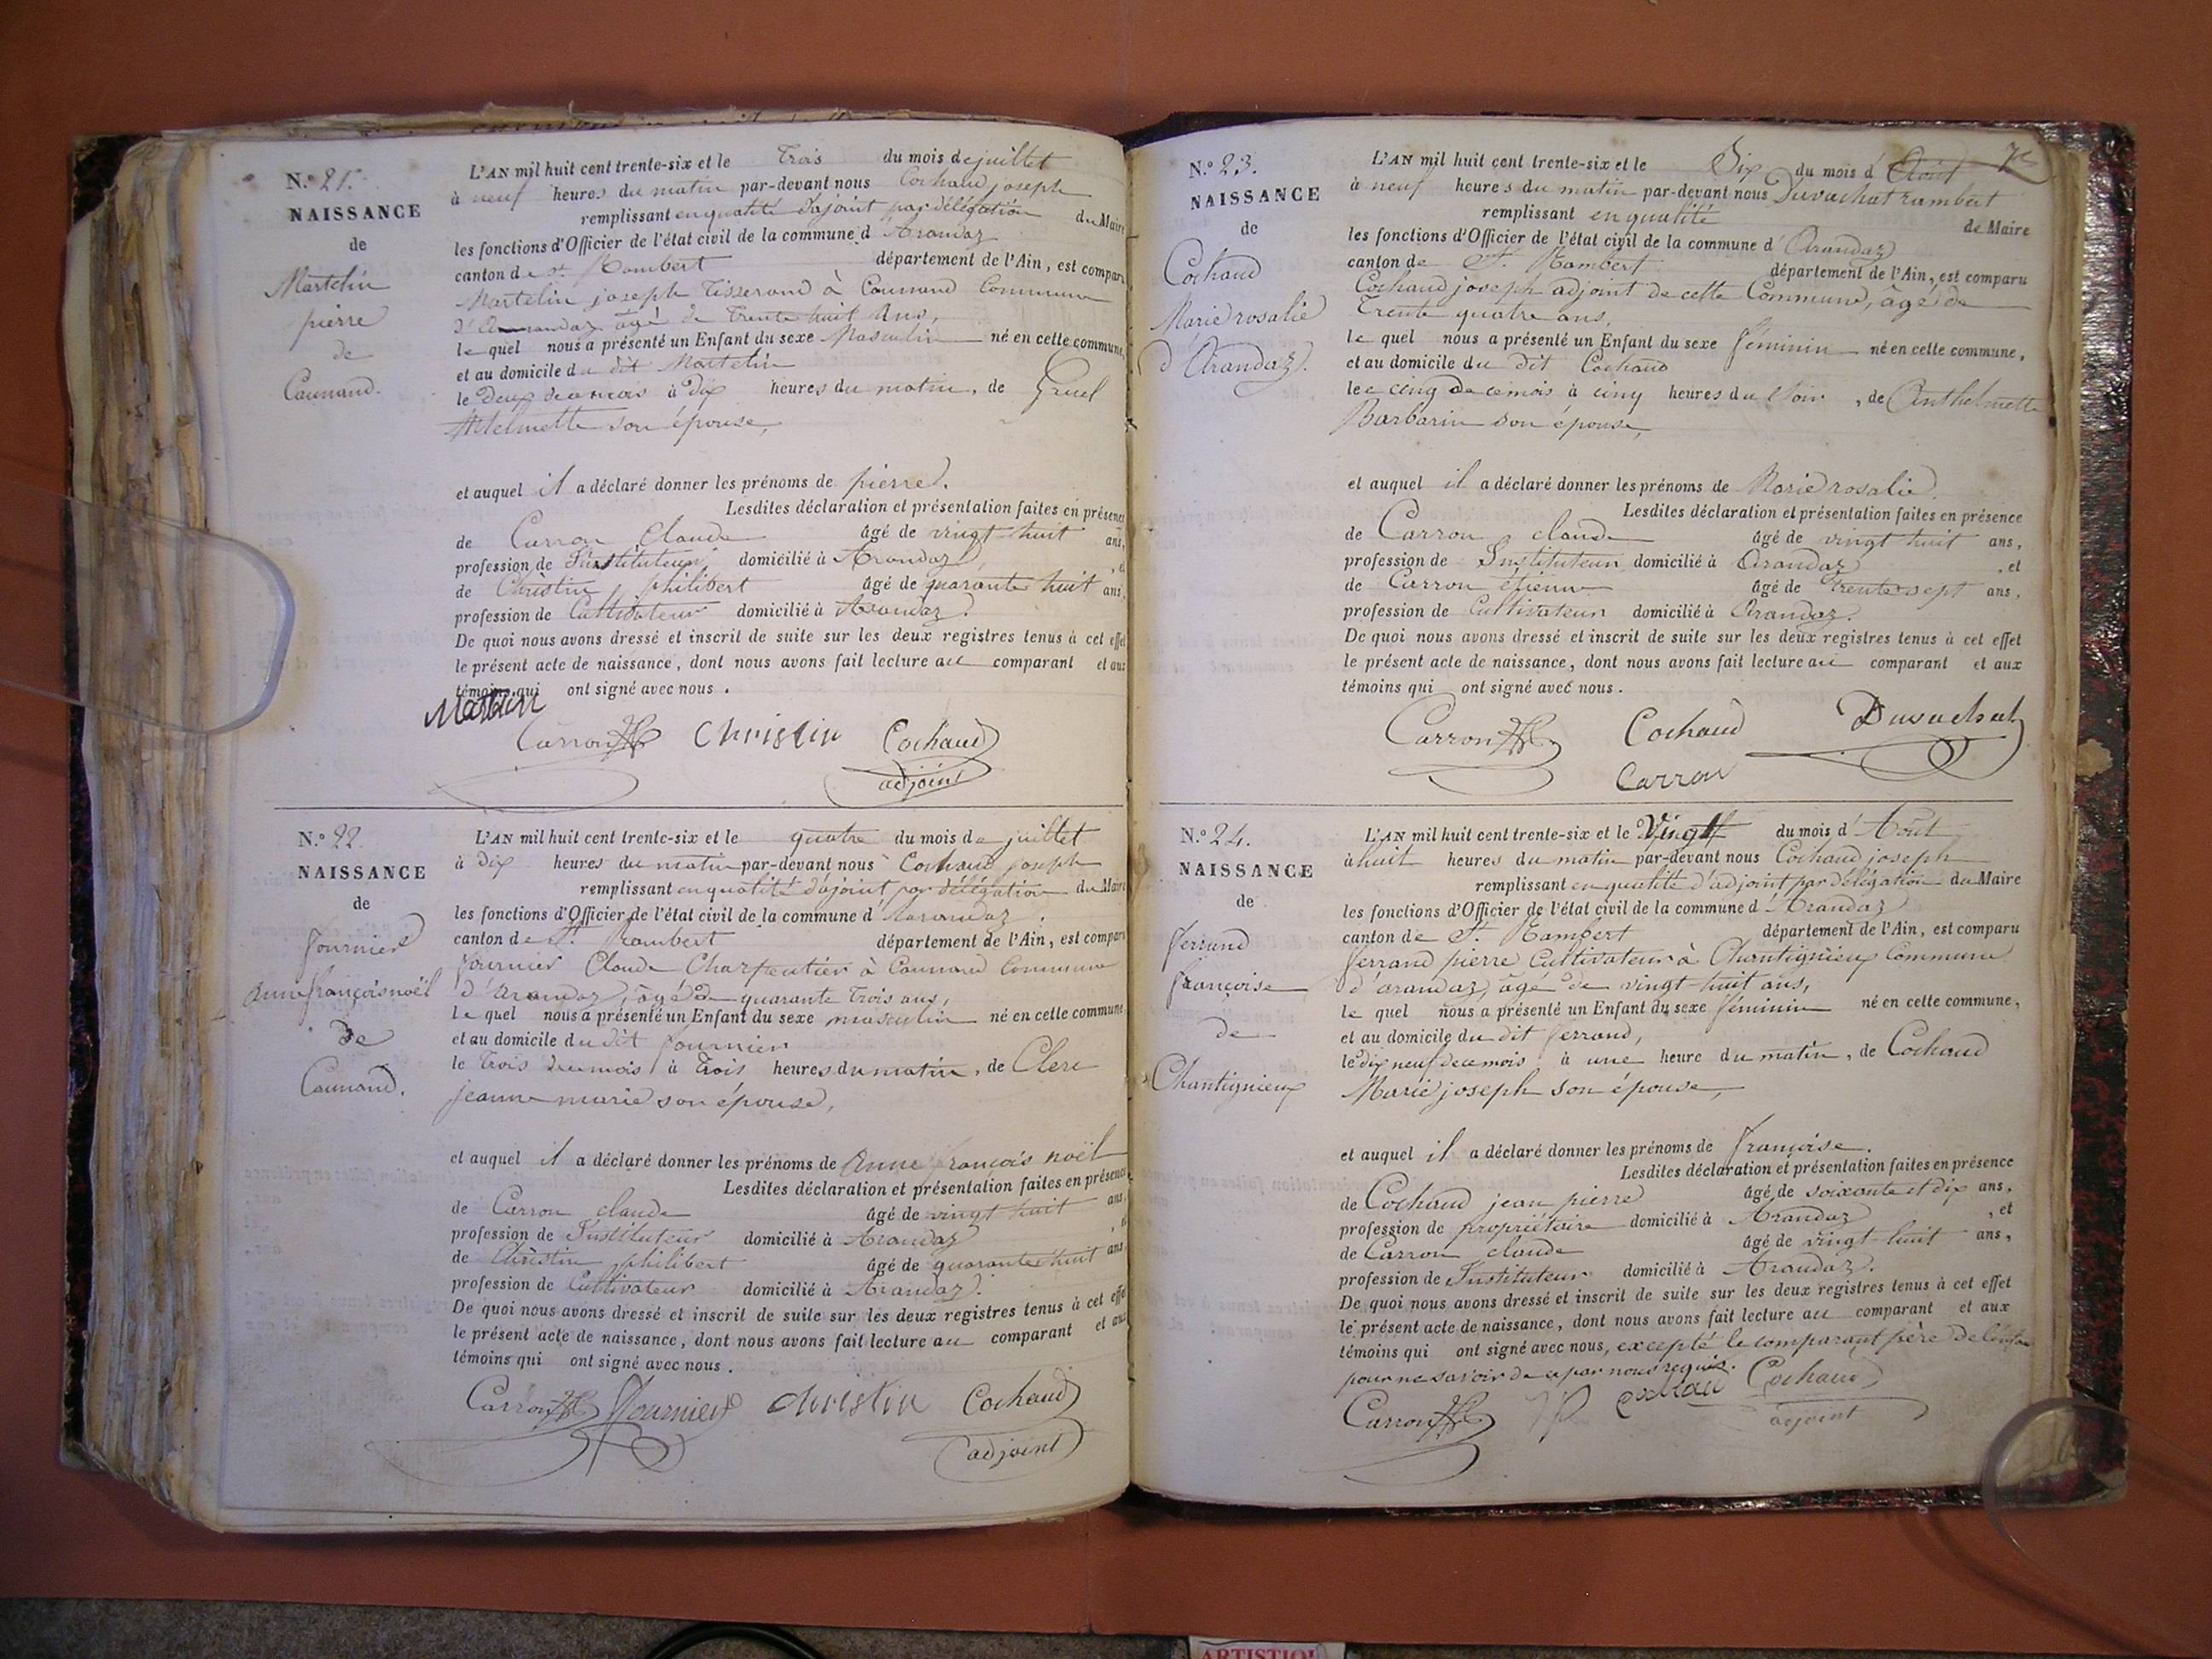 N.° 21.
NAISSANCE
de
Martelin
pierre
de
Counand.
L'AN mil huit cent trente-six et le Trois du mois de juillet
à neuf heures du matin par-devant nous Cochaud joseph
remplissant en qualité d'ajoint par délégation du Maire
les fonctions d'Officier de l'état civil de la commune d'Arandaz
canton de St. Rambert département de l'Ain, est comparu
Martelin joseph Tisserand à Counand Commune
d'Arandaz âgé de Trente huit Ans,
le quel nous a présenté un Enfant du sexe Masculin né en cette commune,
et au domicile du dit Martelin
le Deux de ce mois à Dix heures du matin, de Gruel
Antelmette son épouse,
et auquel il a déclaré donner les prénoms de pierre.
Lesdites déclaration et présentation faites en présence
de Carron Claude âgé de vingt huit ans,
profession de Instituteur domicilié à Arandaz, et
de Christin philibert âgé de quarante huit ans,
profession de Cultivateur domicilié à Arandaz.
De quoi nous avons dressé et inscrit de suite sur les deux registres tenus à cet effet
le présent acte de naissance, dont nous avons fait lecture au comparant et aux
témoins qui ont signé avec nous.
Carron Christin Cochaud
adjoint
N.° 22.
NAISSANCE
de
fournier
Anne françois noël
de
Counand.
L'AN mil huit cent trente-six et le quatre du mois de juillet
à Dix heures du matin par-devant nous Cochaud joseph
remplissant en qualité d'ajoint par délégation du Maire
les fonctions d'Officier de l'état civil de la commune d'Arandaz.
canton de St. Rambert département de l'Ain, est comparu
fournier Claude Charpentier à Counand Commune
d'Arandaz, âgé de quarante Trois ans,
le quel nous a présenté un Enfant du sexe masculin né en cette commune
et au domicile du dit fournier
le Trois de ce mois à Trois heures du matin, de Clerc
jeanne marie son épouse,
et auquel il a déclaré donner les prénoms de Anne françois noël
Lesdites déclaration et présentation faites en présence
de Carron claude âgé de vingt huit ans,
profession de Instituteur domicilié à Arandaz, et
de Christin philibert âgé de quarante huit ans,
profession de Cultivateur domicilié à Arandaz.
De quoi nous avons dressé et inscrit de suite sur les deux registres tenus à cet effet
le présent acte de naissance, dont nous avons fait lecture au comparant et aux
témoins qui ont signé avec nous.
Carron fournier christin Cochaud
adjoint
N.° 23.
NAISSANCE
de
Cochaud
Marie rosalie
d'Arandaz.
L'AN mil huit cent trente-six et le Six du mois d'Août
à neuf heures du matin par-devant nous Duvachat rambert
remplissant en qualité de Maire
les fonctions d'Officier de l'état civil de la commune d'Arandaz
canton de St. Rambert département de l'Ain, est comparu
Cochaud joseph adjoint de cette Commune, âgé de
Trente quatre ans,
le quel nous a présenté un Enfant du sexe féminin né en cette commune,
et au domicile du dit Cochaud
le cinq de ce mois à cinq heures du soir, de Anthelmette
Barbarin son épouse,
et auquel il a déclaré donner les prénoms de Marie rosalie.
Lesdites déclaration et présentation faites en présence
de Carron claude âgé de vingt huit ans,
profession de Instituteur domicilié à Arandaz, et
de Carron étienne âgé de trente sept ans,
profession de Cultivateur domicilié à Arandaz.
De quoi nous avons dressé et inscrit de suite sur les deux registres tenus à cet effet
le présent acte de naissance, dont nous avons fait lecture au comparant et aux
témoins qui ont signé avec nous.
Carron Cochaud Duvachat
Carron
N.° 24.
NAISSANCE
de
ferrand
françoise
de
Chantignieux
L'AN mil huit cent trente-six et le Vingt du mois d'Août
à huit heures du matin par-devant nous Cochaud joseph
remplissant en qualité d'adjoint par délégation du Maire
les fonctions d'Officier de l'état civil de la commune d'Arandaz
canton de St. Rambert département de l'Ain, est comparu
ferrand pierre Cultivateur à Chantignieux Commune
d'arandaz, âgé de vingt-huit ans,
le quel nous a présenté un Enfant du sexe féminin né en cette commune,
et au domicile du dit ferrand,
le dix neuf de ce mois à une heure du matin, de Cochaud
Marie joseph son épouse,
et auquel il a déclaré donner les prénoms de françoise.
Lesdites déclaration et présentation faites en présence
de Cochaud jean pierre âgé de soixante et dix ans,
profession de propriétaire domicilié à Arandaz, et
de Carron claude âgé de vingt huit ans,
profession de Instituteur domicilié à Arandaz.
De quoi nous avons dressé et inscrit de suite sur les deux registres tenus à cet effet
le présent acte de naissance, dont nous avons fait lecture au comparant et aux
témoins qui ont signé avec nous, excepté le comparant père de l'enfant
pour ne savoir de ce par nous requis.
Carron Cochaud
adjoint